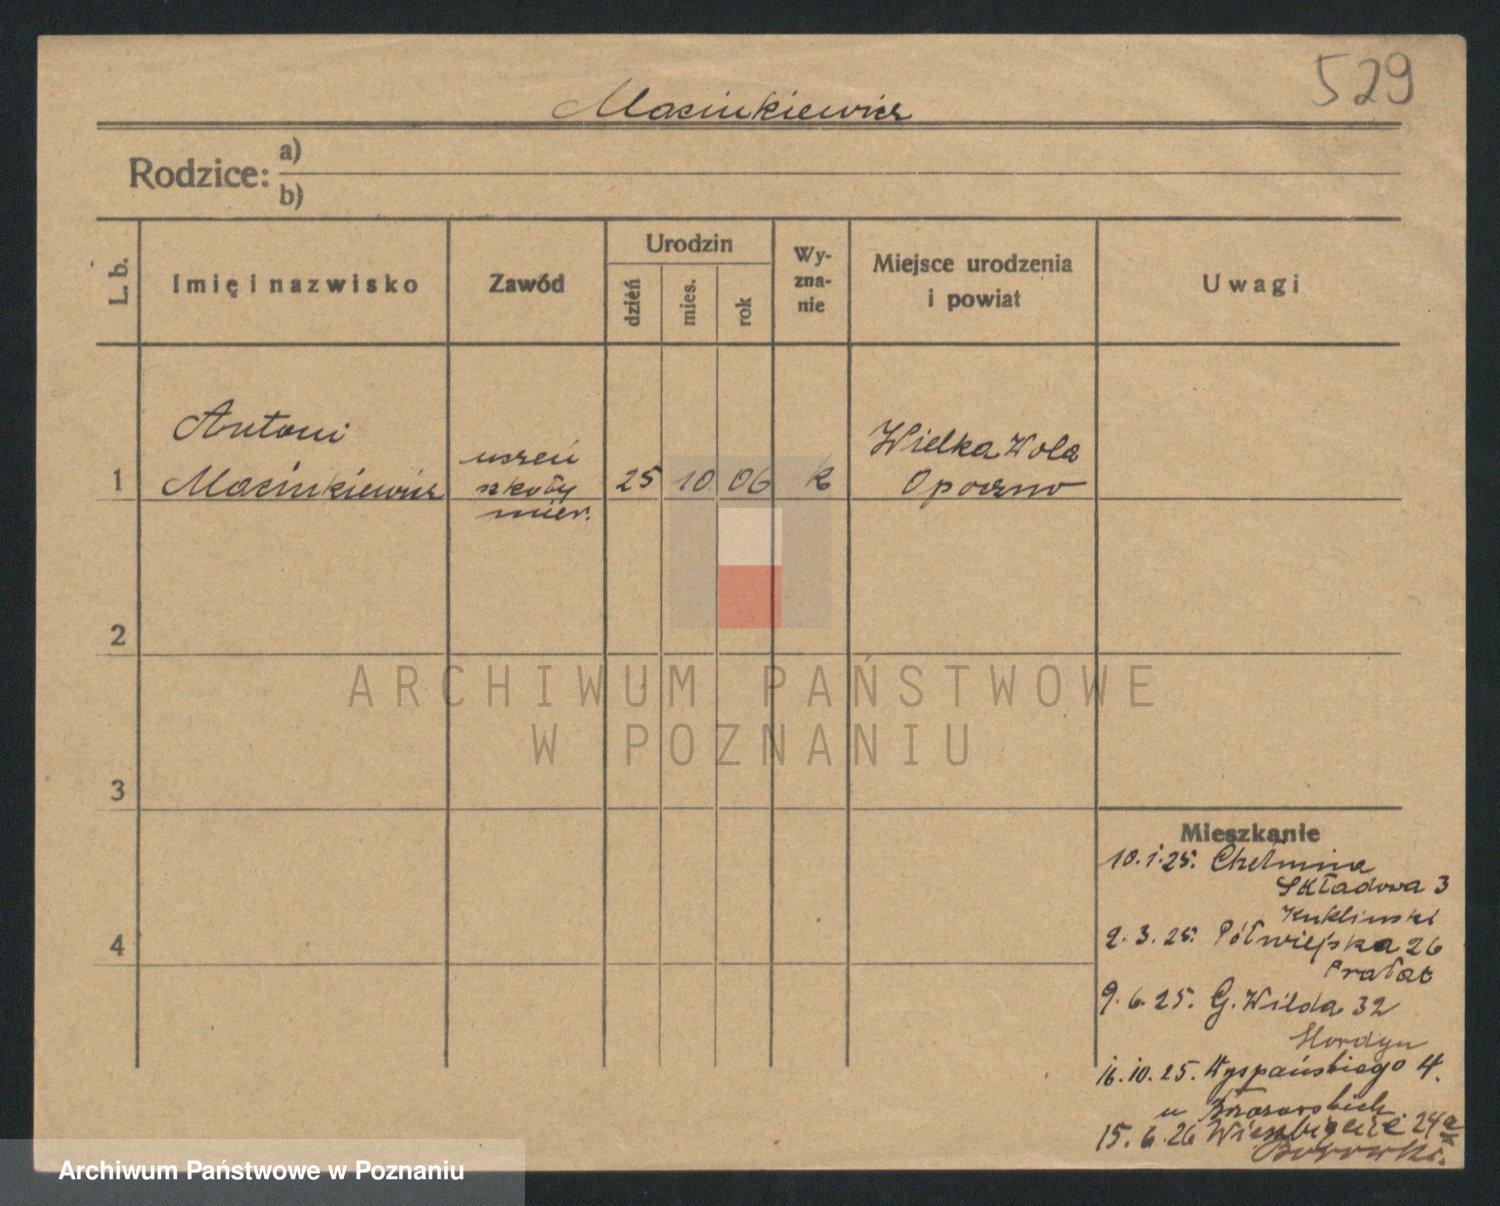 529
Macinkiewicz
Rodzice: a)
b)
L. b.
Imię i nazwisko
Zawód
Urodzin
dzień
mies.
rok
Wy-
zna-
nie
Miejsce urodzenia
i powiat
Uwagi
Antoni
1 Macinkiewicz
uczeń
szkoły
mier.
25 10 06 k
Wielka Wola
Opoczno
2
3
4
Mieszkanie
10.1.25. Chełmina
Składowa 3
Kuklinski
2.3.25. Półwiejska 26
Prałat
9.6.25. G. Wilda 32
Hordyn
16.10.25. Wyspańskiego 4.
u
15.6.26 24a
Borowski.
ARCHIWUM PAŃSTWOWE
W POZNANIU
Archiwum Państwowe w Poznaniu